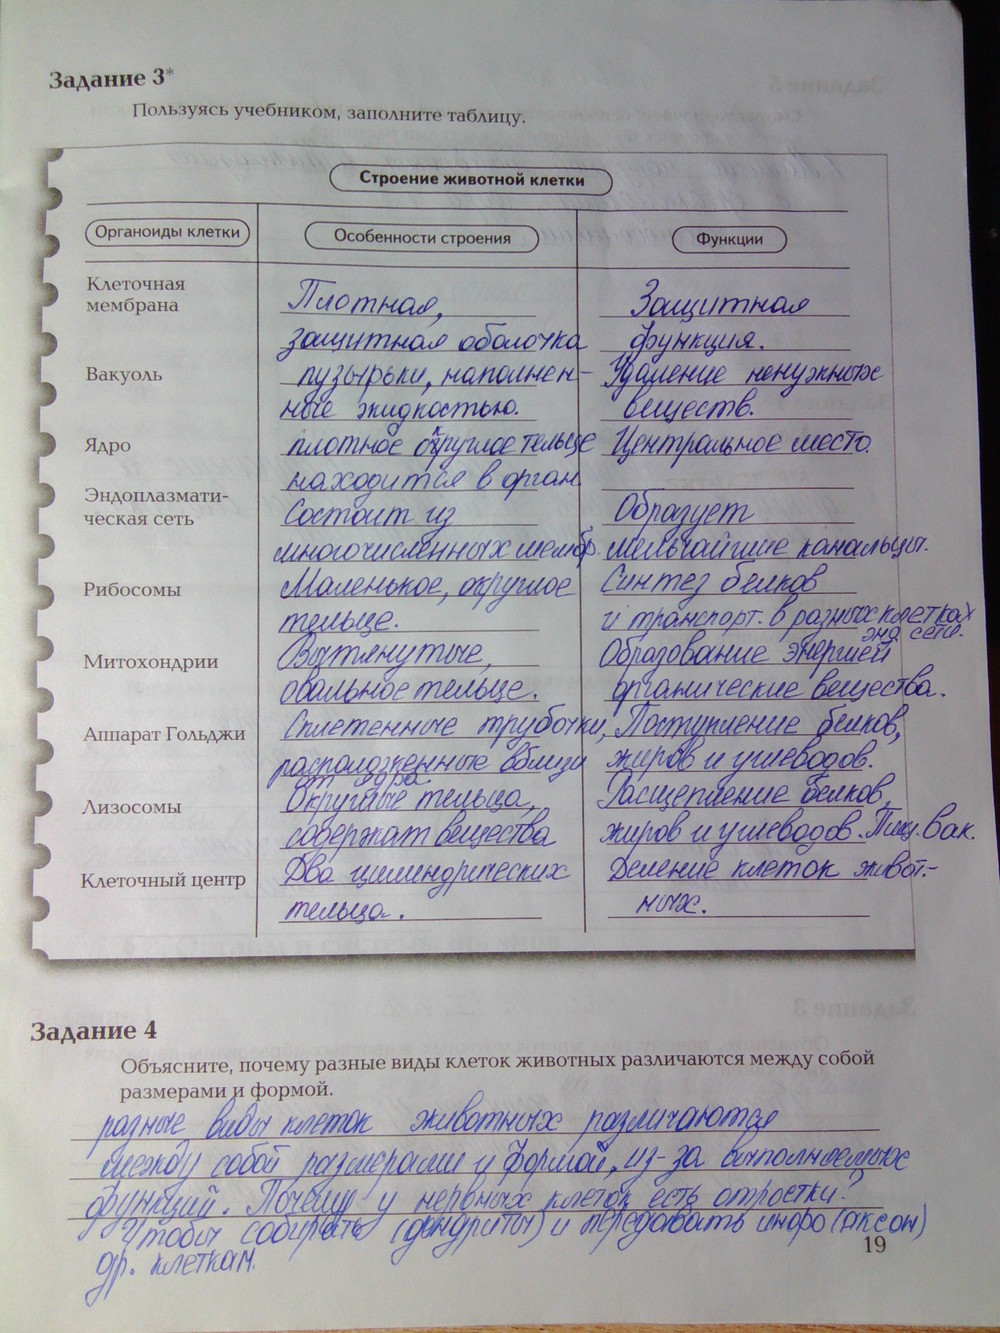 Задание 3*
Пользуясь учебником, заполните таблицу.
Строение животной клетки
Органоиды клетки
Особенности строения
Функции
Клеточная мембрана
Плотная,
защитная оболочка
Защитная
функция.
Вакуоль
пузырьки, наполнен-
ные жидкостью.
Удаление ненужных
веществ.
Ядро
плотное округлое тельце
находится в орган
Центральное место.
Эндоплазмати-
ческая сеть
Состоит из
многочисленных мембр.
Образует
мельчайшие канальцы.
Рибосомы
Маленькое, округлое
тельце.
Синтез белков
и транспорт. в разных клетках
энд сети.
Митохондрии
Вытянутые,
овальное тельце.
Образование энергией
органические вещества.
Аппарат Гольджи
Сплетенные трубочки,
расположенные вблизи
от ядра.
Поступление белков,
жиров и углеводов.
Лизосомы
Округлые тельца,
содержат вещества
Расщепление белков,
жиров и углеводов. Пищ. вак.
Клеточный центр
Два цилиндрических
тельца.
Деление клеток живот-
ных.
Задание 4
Объясните, почему разные виды клеток животных различаются между собой
размерами и формой.
разные виды клеток животных различаются
между собой размерами и формой, из-за выполняемых
функций. Почему у нервных клеток есть отростки?
Чтобы собирать (дендриты) и передавать инфо (аксон)
др. клеткам.
19